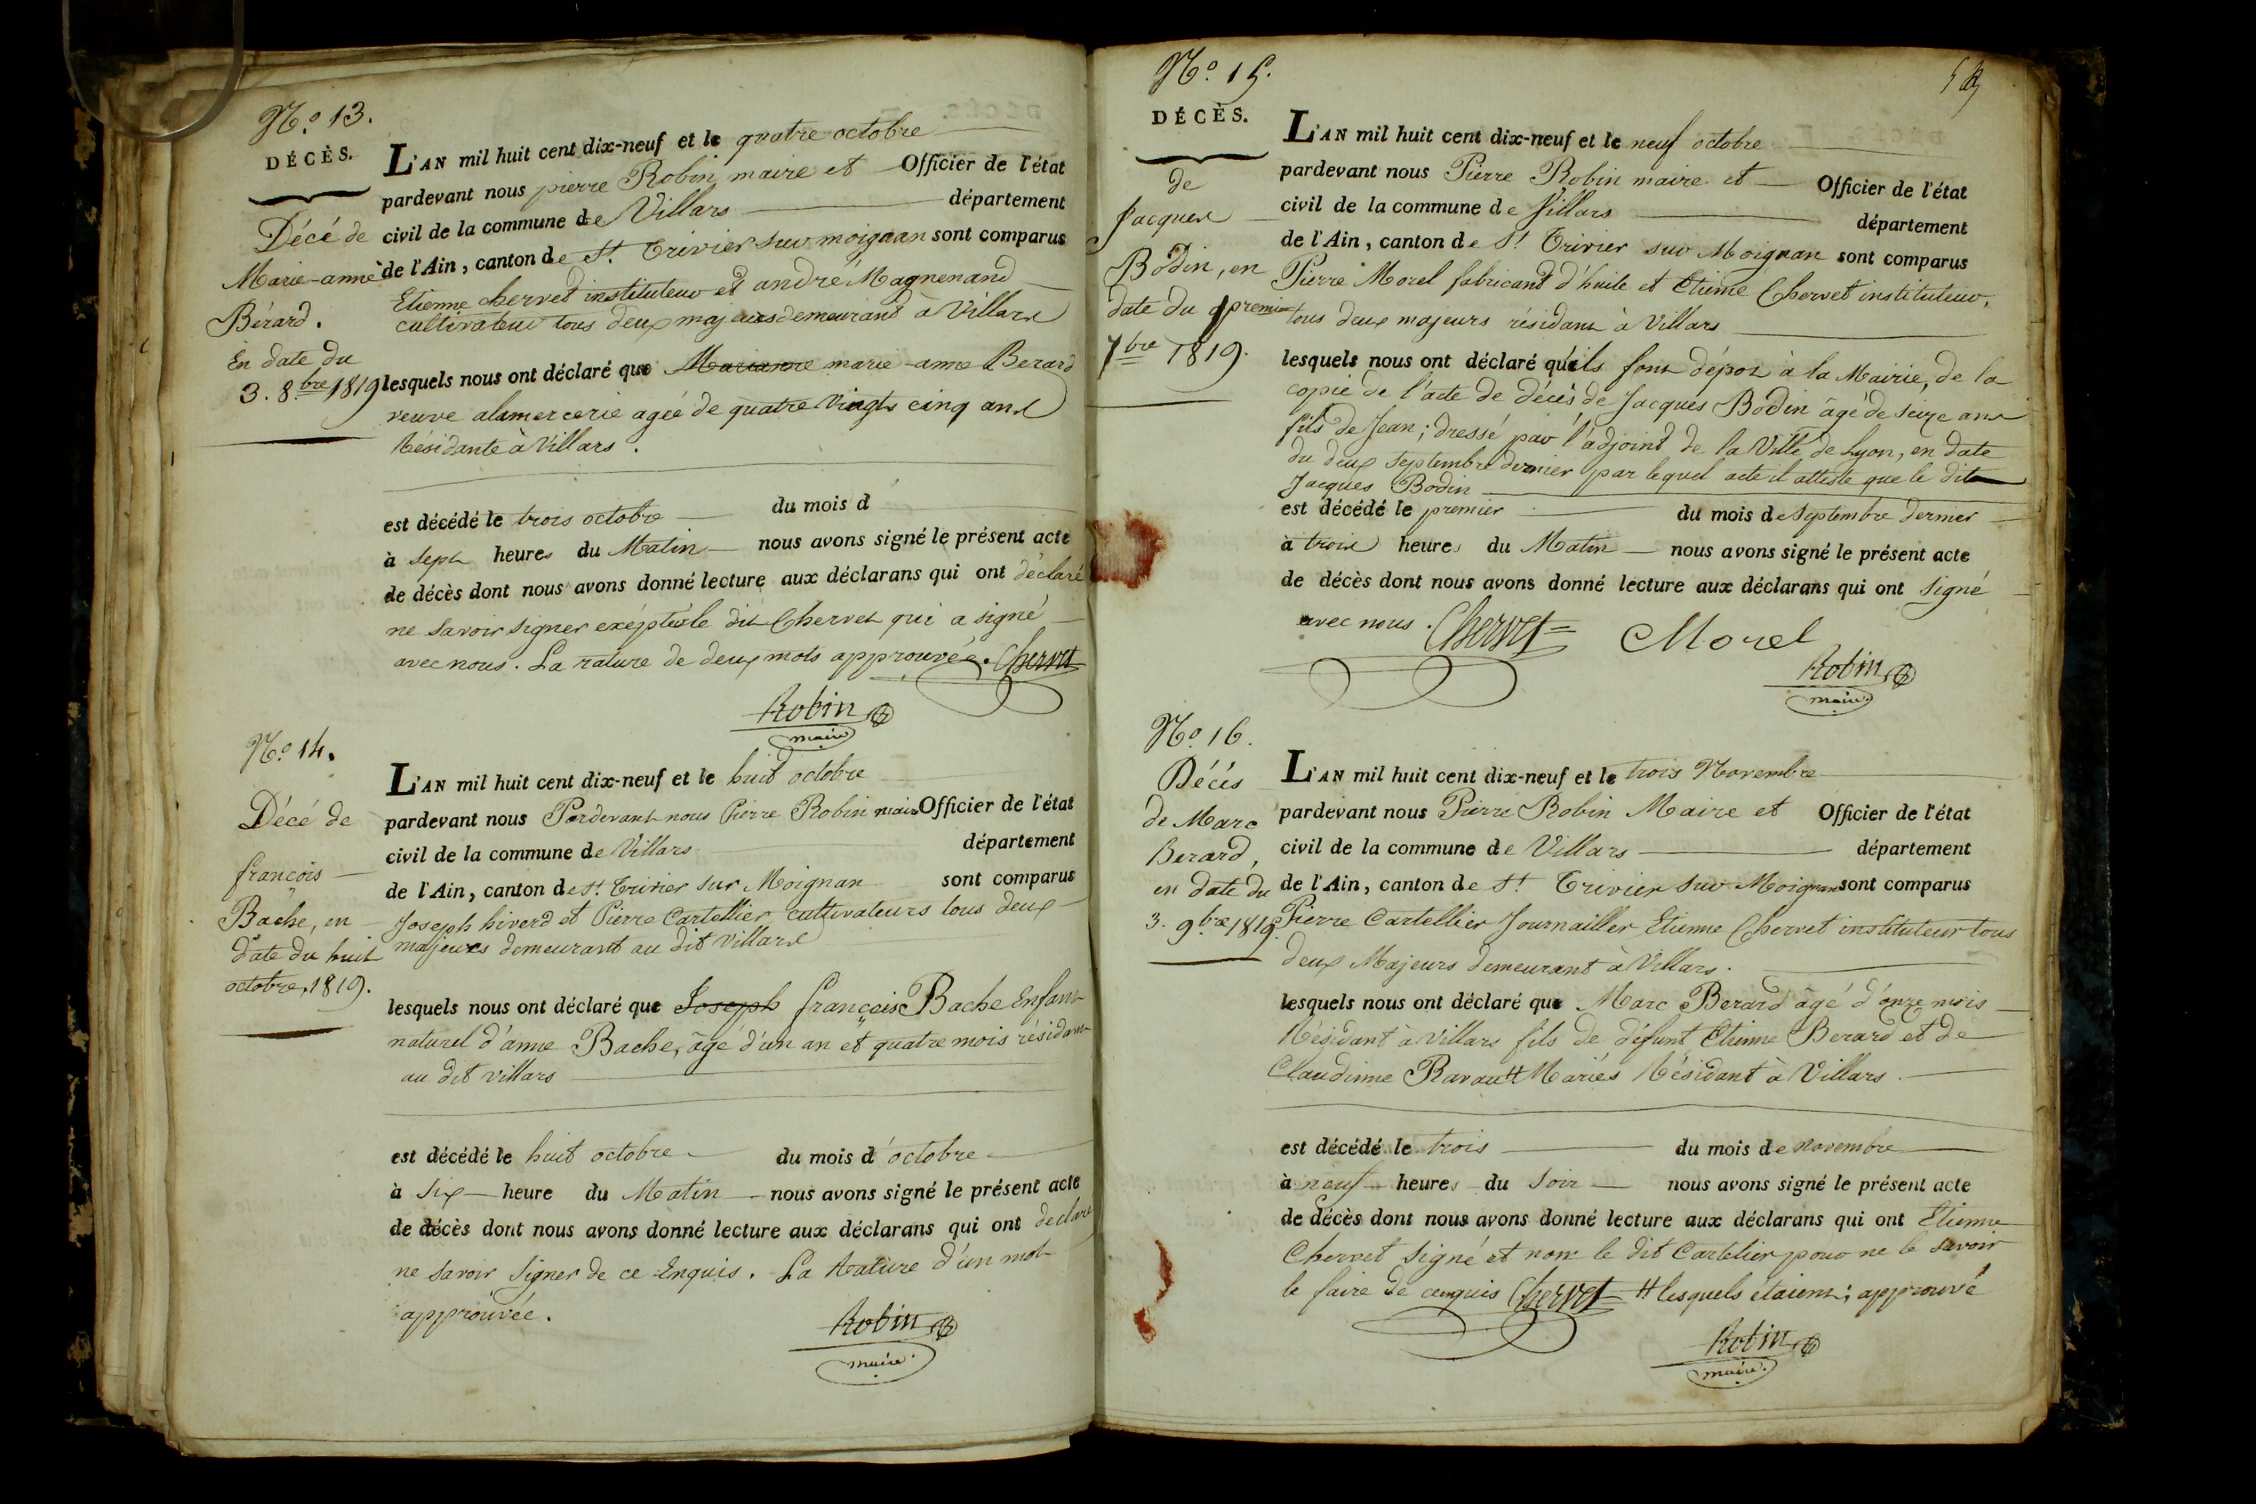 N.o 13.
DÉCÈS.
Décé de
Marie-anne
Bérard.
En date du
3. 8.bre 1819
L'AN mil huit cent dix-neuf et le quatre octobre
pardevant nous pierre Robin maire et Officier de l'état
civil de la commune de Villars département
de l'Ain, canton de St. Trivier sur moignan sont comparus
Etienne Chervet instituteur et andré Magnenand
cultivateur tous deux majeurs demeurand à Villars
lesquels nous ont déclaré que Marianne marie-anne Berard
veuve agée de quatre Vingts cinq ans
Résidante à Villars.
est décédé le trois octobre du mois d
à sept heures du Matin nous avons signé le présent acte
de décès dont nous avons donné lecture aux déclarans qui ont déclaré
ne savoir signer exéptés le dit Chervet qui a signé
avec nous. La rature de deux mots approuvée. Chervet
Robin
maire
N.o 14.
Décé de
françois
Bache, en
date du huit
octobre, 1819.
L'AN mil huit cent dix-neuf et le huit octobre
pardevant nous Pardevant nous Pierre Robin maire Officier de l'état
civil de la commune de Villars département
de l'Ain, canton de St. Trivier sur Moignan sont comparus
Joseph hiverd et Pierre Cartellier cultivateurs tous deux
majeurs demeurant au dit Villars
lesquels nous ont déclaré que Joseph françois Bache Enfant
naturel d'anne Bache, âgé d'un an et quatre mois résidant
au dit villars
est décédé le huit octobre du mois d'octobre
à Six heure du Matin nous avons signé le présent acte
de décès dont nous avons donné lecture aux déclarans qui ont declaré
ne savoir signer de ce Enquis. La Rature d'un mot
approuvée.
Robin
maire.
N.o 15.
DÉCÈS.
de
Jacques
Bodin, en
date du premier
7bre 1819.
L'AN mil huit cent dix-neuf et le neuf octobre
pardevant nous Pierre Robin maire et Officier de l'état
civil de la commune de Villars département
de l'Ain, canton de St. Trivier sur Moignan sont comparus
Pierre Morel fabricant d'huile et Etienne Chervet instituteur,
tous deux majeurs résidant à Villars
lesquels nous ont déclaré qu'ils font dépot à la Mairie, de la
copie de l'acte de décès de Jacques Bodin âgé de seize ans
fils de Jean; dressé par l'adjoint de la Ville de Lyon, en date
du deux septembre dernier par lequel acte il atteste que le dit
Jacques Bodin
est décédé le premier du mois de Septembre dernier
à trois heures du Matin nous avons signé le présent acte
de décès dont nous avons donné lecture aux déclarans qui ont signé
avec nous. Chervet Morel
Robin
maire
N.o 16.
Décés
de Marc
Berard,
en date du
3. 9bre 1819.
L'AN mil huit cent dix-neuf et le trois Novembre
pardevant nous Pierre Robin Maire et Officier de l'état
civil de la commune de Villars département
de l'Ain, canton de St. Trivier sur Moignan sont comparus
Pierre Cartellier Journailler Etienne Chervet instituteur tous
deux Majeurs demeurant à Villars.
lesquels nous ont déclaré que Marc Berard âgé d'onze mois
Résidant à Villars fils de défunt Etienne Berard et de
Claudinne Ravau # Mariés Résidant à Villars.
est décédé le trois du mois de novembre
à neuf heures du Soir nous avons signé le présent acte
de décès dont nous avons donné lecture aux déclarans qui ont Etienne
Chervet signé et non le dit Cartelier pour ne le savoir
le faire de cenquis Chervet # lesquels étaient; approuvé
Robin
maire.